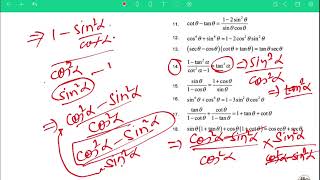 ⇒ 1 - sin²α / cos²α
cos²α / sin²α - 1
⇒ cos²α - sin²α / cos²α
cos²α - sin²α / sin²α
11. cotθ - tanθ = 1 - 2sin²θ / sinθ cosθ
12. cos⁴θ + sin⁴θ = 1 - 2cos²θ sin²θ
13. (secθ - cosθ)(cotθ + tanθ) = tanθ secθ
14. 1 - tan²α / cot²α - 1 = tan²α ⇒ sin²α / cos²α
⇒ tan²α
15.
16. sin⁶θ + cos⁶θ = 1 - 3sin²θ cos²θ
17. tanθ / 1 - cotθ + cotθ / 1 - tanθ = 1 +
18. sinθ(1 + tanθ) + cosθ(1 + cotθ) = cosecθ + secθ
⇒ cos²α - sin²α / cos²α × sin²α / cos²α - sin²α